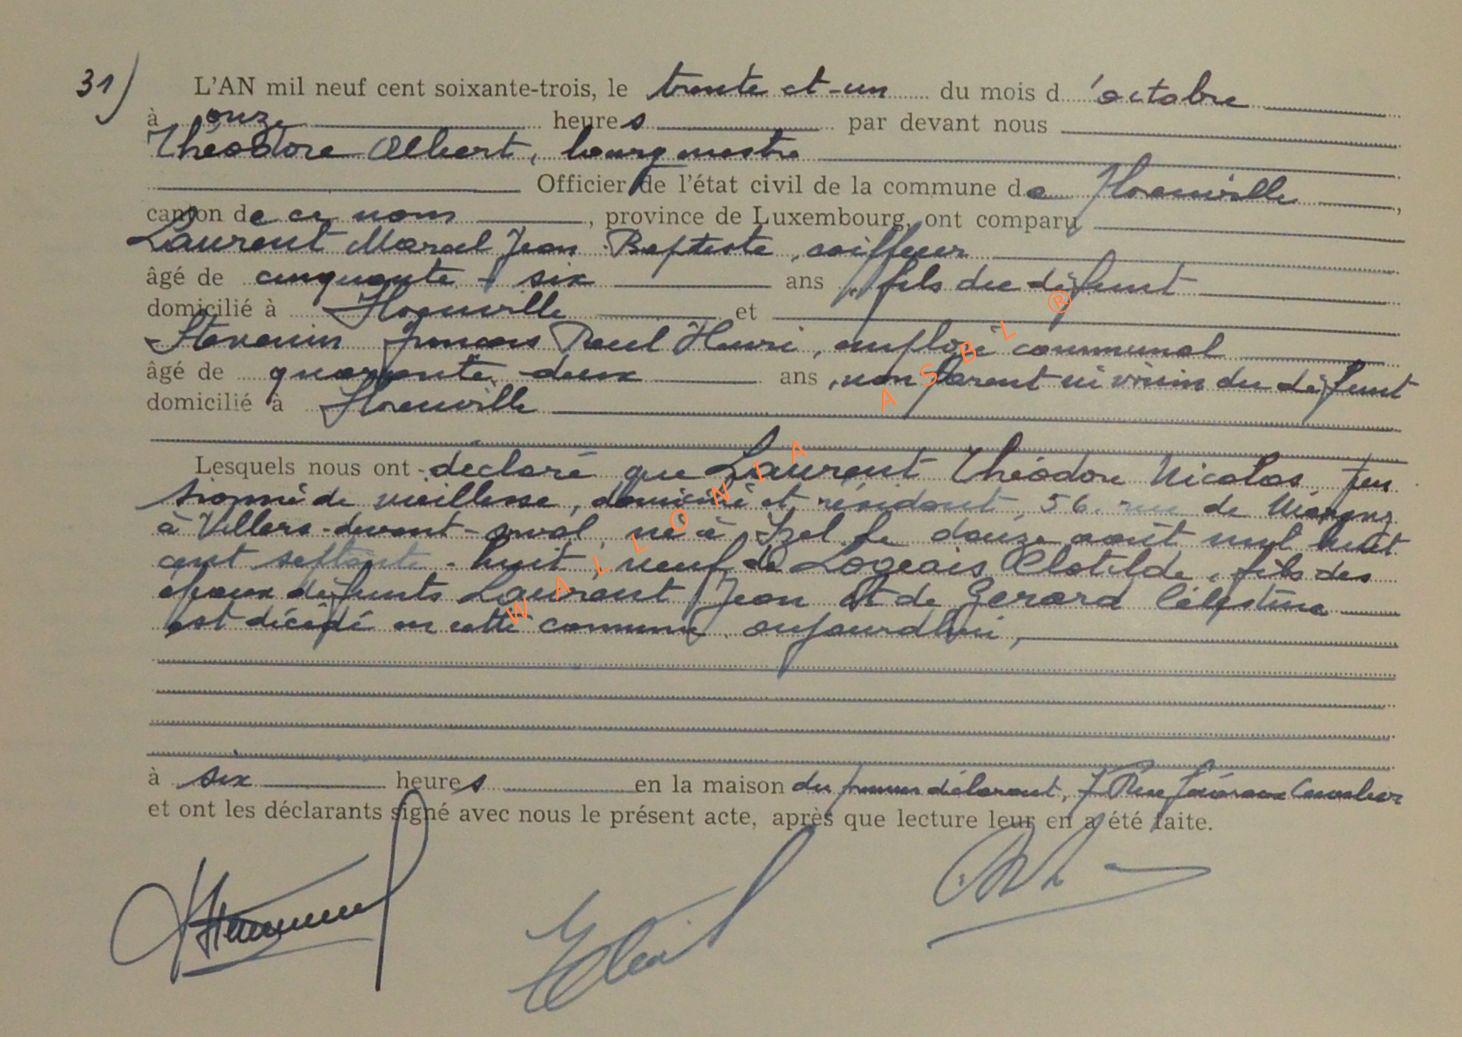 31) L'AN mil neuf cent soixante-trois, le trente et-un du mois d'octobre
à onze heures par devant nous
Théodore Albert, bourgmestre
Officier de l'état civil de la commune de Florenville,
canton de ce nom, province de Luxembourg, ont comparu
Laurent Marcel Jean Baptiste, coiffeur
âgé de cinquante-six ans, fils du défunt
domicilié à Florenville et
Stevenin François Paul Henri, employé communal
âgé de quarante-deux ans, non parent ni voisin du défunt
domicilié à Florenville
Lesquels nous ont déclaré que Laurent Théodore Nicolas, pen
sionné de vieillesse, domicilié et résidant, 56. rue de
à Villers-devant-orval, né à Izel le douze août mil huit
cent septante-huit, veuf de Logeais Clotilde, fils des
époux défunts Laurent Jean et de Gerard Célestine
est décédé en cette commune aujourd'hui,
à six heures en la maison du premier déclarant, 7 Rue
et ont les déclarants signé avec nous le présent acte, après que lecture leur en a été faite.
WALLONIA ASBL ®